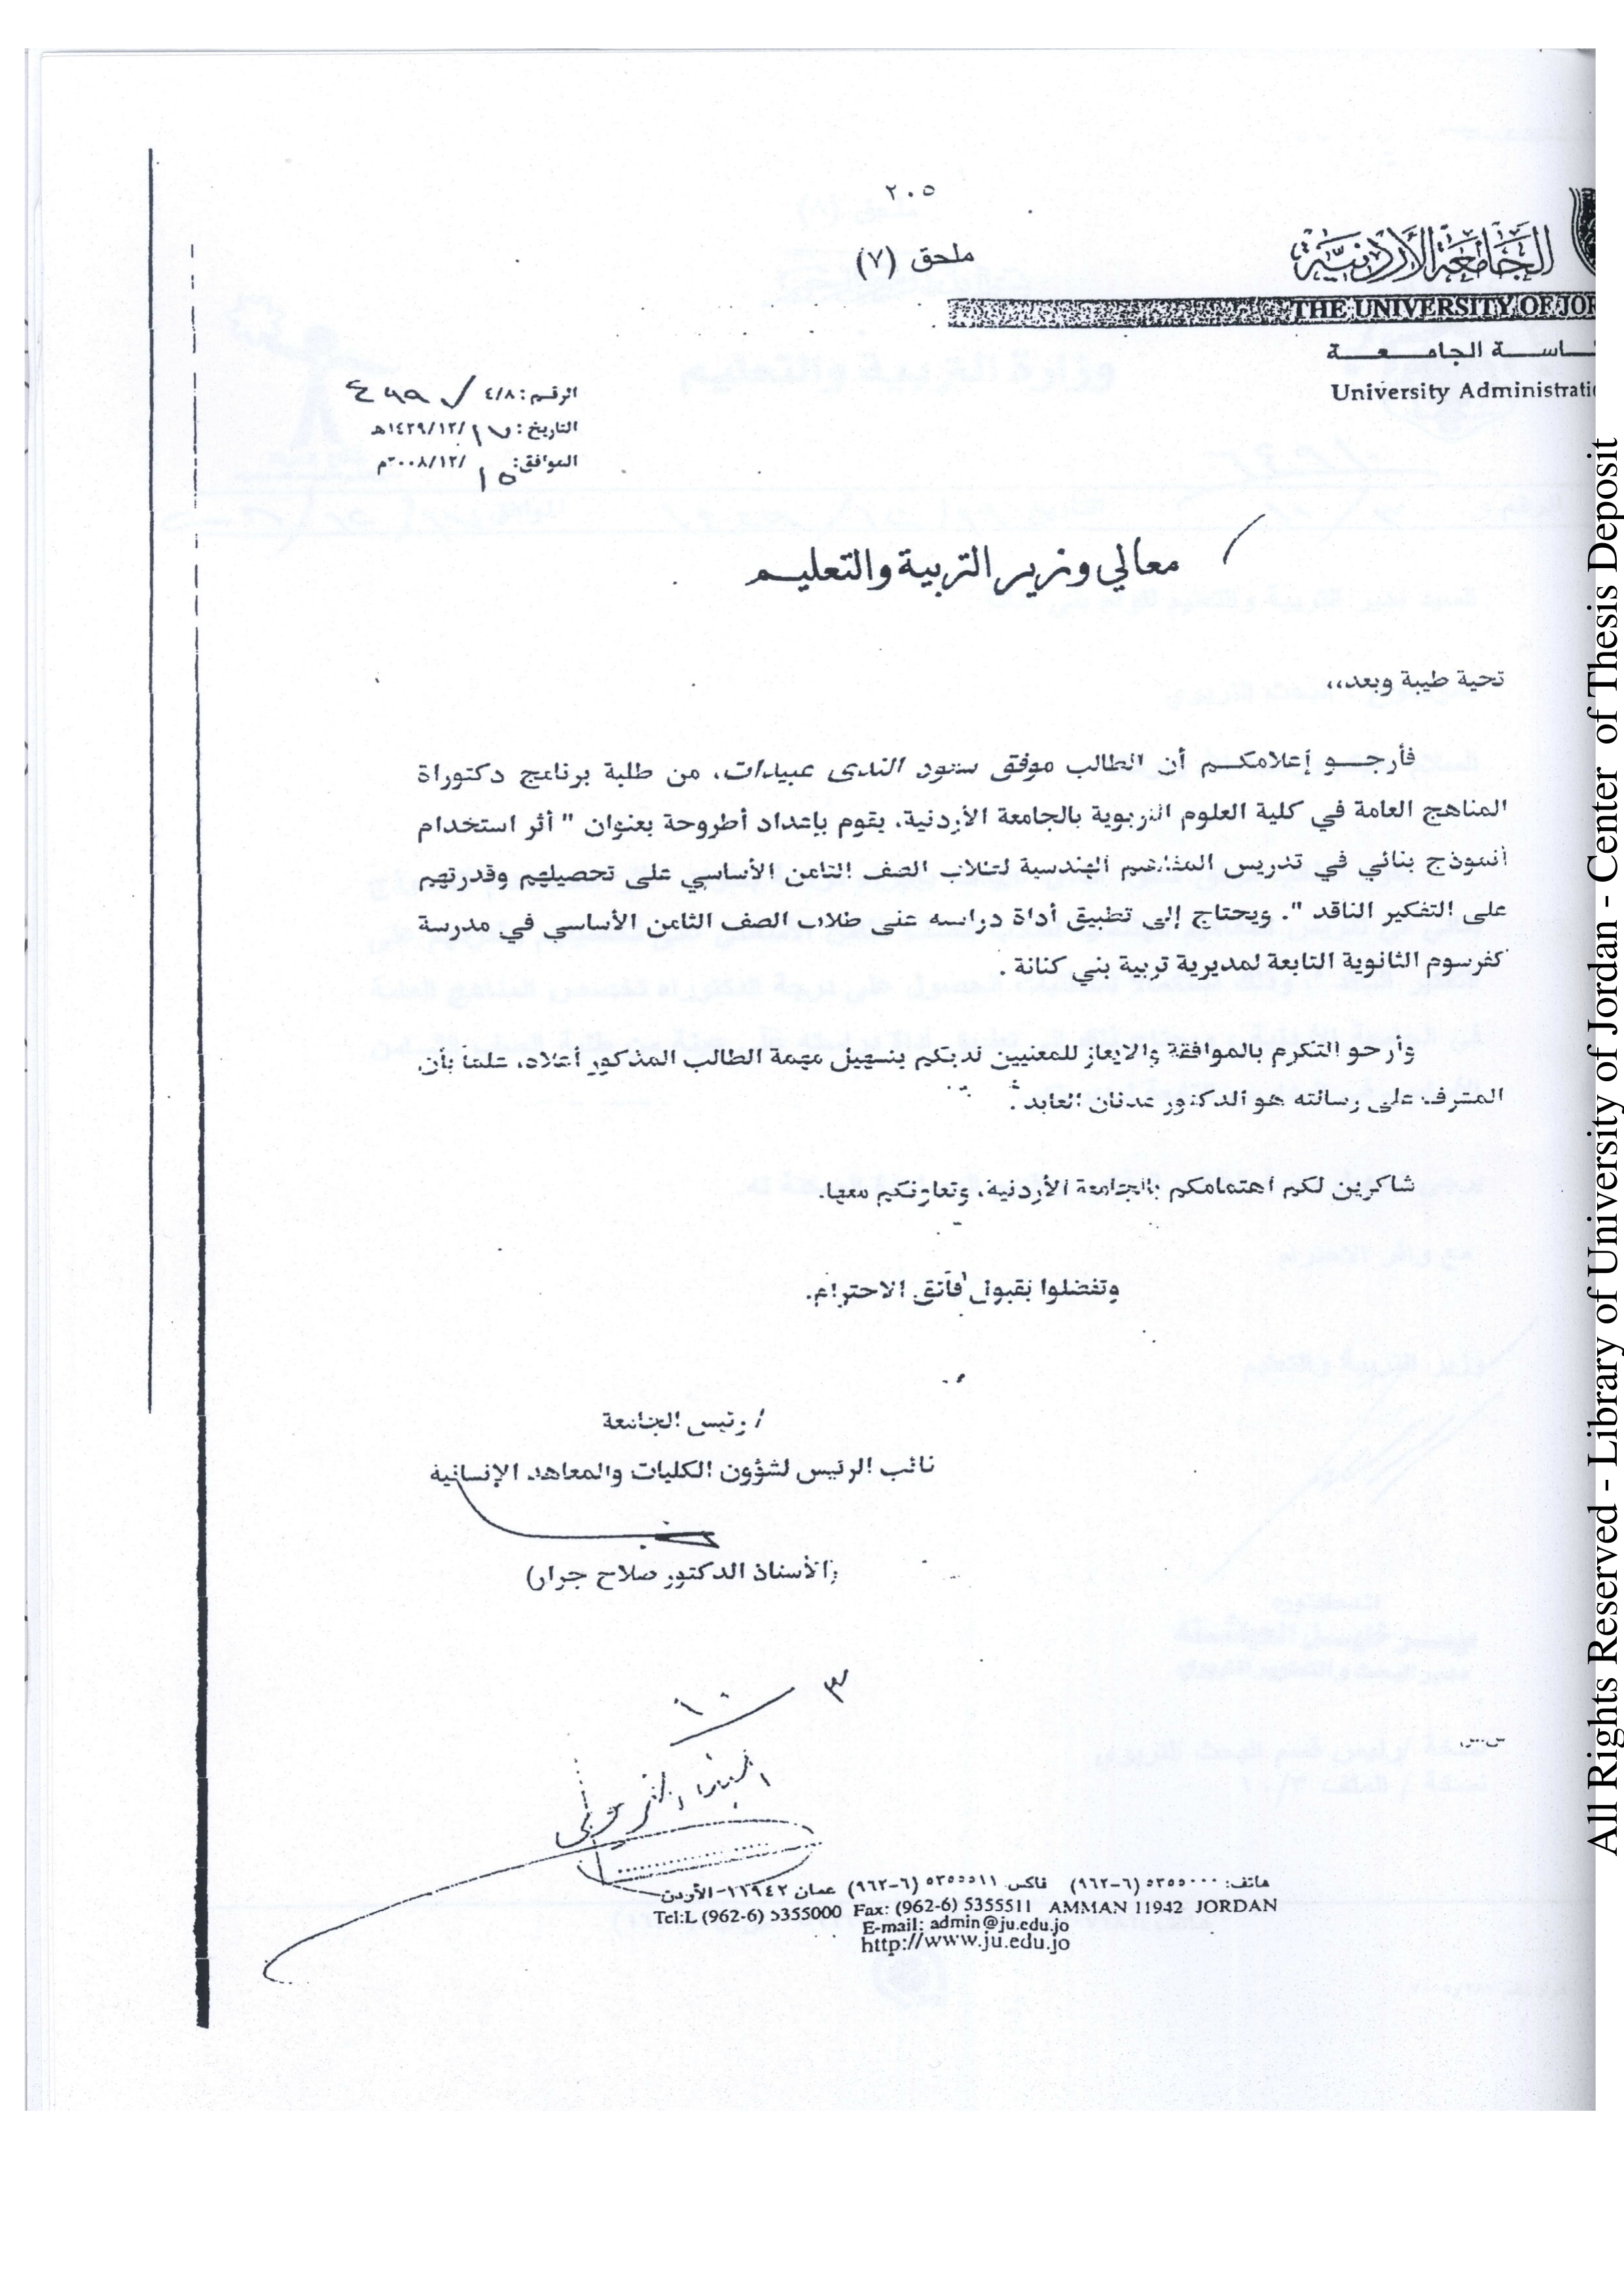 ٢٠٥
ملحق (٧)
الجامعة الأردنية
THE UNIVERSITY OF JOR
ـاسـة الجامـعـة
University Administrati
الرقم: ٤/٨/
التاريخ: ١٧/١٤٢٩/١٢هـ
الموافق: ١٥/٢٠٠٨/١٢م
معالي وزير التربية والتعليم
تحية طيبة وبعد،،
فأرجو إعلامكم أن الطالب موفق سعود الندى عبيدات، من طلبة برنامج دكتوراة
المناهج العامة في كلية العلوم التربوية بالجامعة الأردنية، يقوم بإعداد أطروحة بعنوان " أثر استخدام
أنموذج بنائي في تدريس المفاهيم الهندسية لطلاب الصف الثامن الأساسي على تحصيلهم وقدرتهم
على التفكير الناقد ". ويحتاج إلى تطبيق أداة دراسه على طلاب الصف الثامن الأساسي في مدرسة
كفرسوم الثانوية التابعة لمديرية تربية بني كنانة .
وأرجو التكرم بالموافقة والايعاز للمعنيين لديكم بتسهيل مهمة الطالب المذكور أعلاه، علما بأن
المشرف على رسالته هو الدكتور عدنان العابد .
شاكرين لكم اهتمامكم بالجامعة الأردنية، وتعاونكم معها.
وتفضلوا بقبول فائق الاحترام.
/ رئيس الجامعة
نائب الرئيس لشؤون الكليات والمعاهد الإنسانية
(الأستاذ الدكتور صلاح جرار)
٣ ١٠
هاتف: ٥٣٥٥٠٠٠ (٦-٩٦٢) فاكس ٥٣٥٥٥١١ (٦-٩٦٢) عمان ١١٩٤٢-الأردن
Tel:L (962-6) 5355000 Fax: (962-6) 5355511 AMMAN 11942 JORDAN
E-mail: admin@ju.edu.jo
http://www.ju.edu.jo
All Rights Reserved - Library of University of Jordan - Center of Thesis Deposit